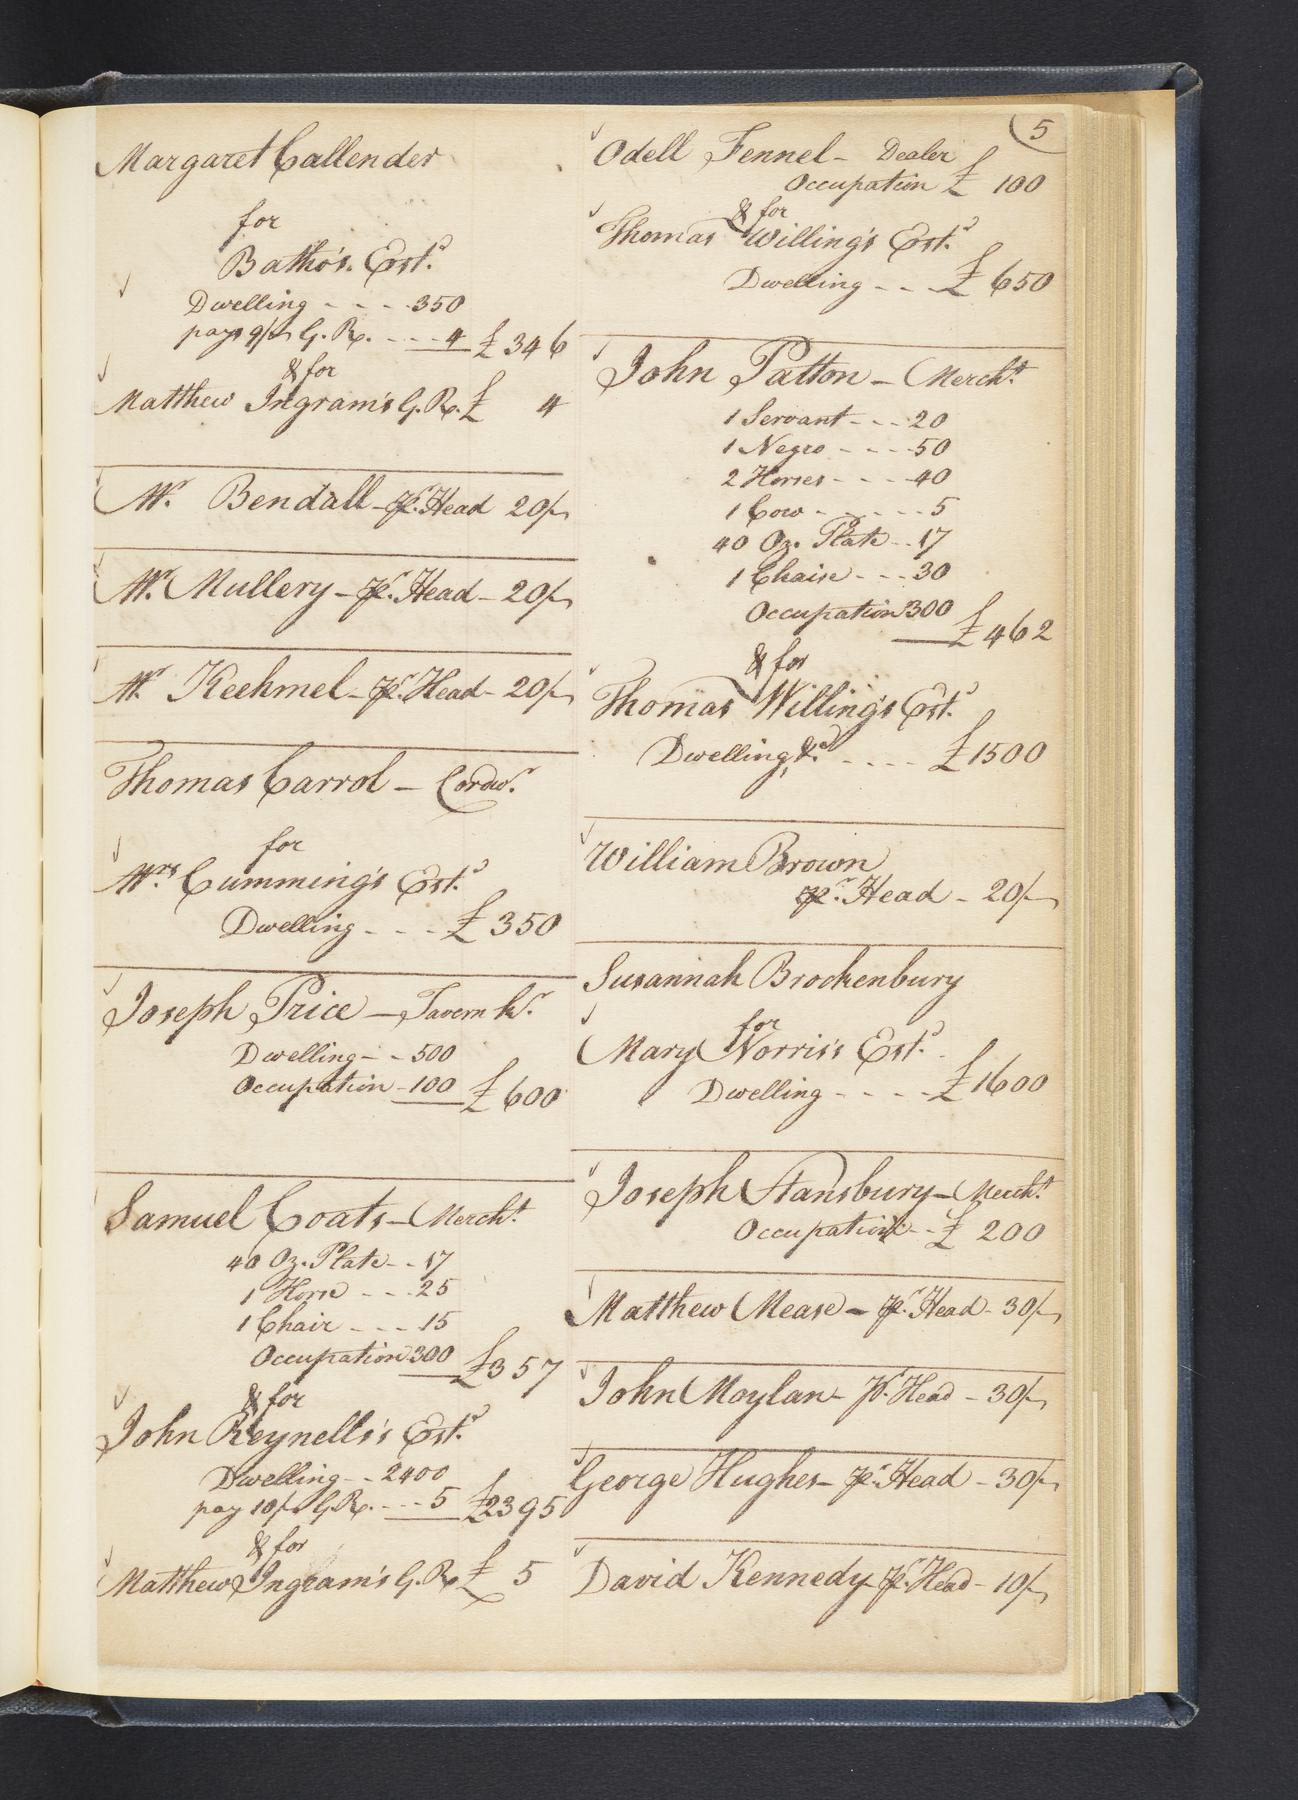 5
Margaret Callender
for
Batho's. Est.ᵈ
Dwelling - - - - 350
pays 9/ps G. R. - - - - 4 £ 346
& for
Matthew Ingram's G. R. £ 4
Mʳ. Bendall - pʳ. Head 20/-
Mʳ. Mullery - pʳ. Head - 20/-
Mʳ Keehmel - pʳ. Head - 20/-
Thomas Carrol - Cordwʳ.
for
Mʳˢ. Cumming's Est.ᵈ
Dwelling - - - £ 350
Joseph Price - Tavern kʳ.
Dwelling - - 500
Occupation - 100 £ 600
Samuel Coats - Mercht.
40 Oz. Plate - - 17
1 Horse - - - 25
1 Chair - - - 15
Occupation 300 £357
& for
John Reynells's Est.ᵈ
Dwelling - - 2400
pay 10/ps G. R. - - - 5 £2395
& for
Matthew Ingram's G. R. £ 5
Odell Fennel - Dealer
Occupation £ 100
& for
Thomas Willing's Est.ᵈ
Dwelling - - - £ 650
John Patton - Mercht.
1 Servant - - - 20
1 Negro - - - - 50
2 Horses - - - - 40
1 Cow - - - - - 5
40 Oz. Plate - - 17
1 Chaise - - - 30
Occupation 300 £462
& for
Thomas Willing's Est.ᵈ
Dwelling, &ᶜ. - - - - £1500
William Brown
pʳ. Head - 20/-
Susannah Brockenbury
for
Mary Norris's Est.ᵈ
Dwelling - - - - £1600
Joseph Stansbury - Mercht.
Occupation - - £ 200
Matthew Mease - pʳ. Head - 30/-
John Moylan - pʳ. Head - 30/-
George Hughes - pʳ. Head - 30/-
David Kennedy pʳ. Head - 10/-